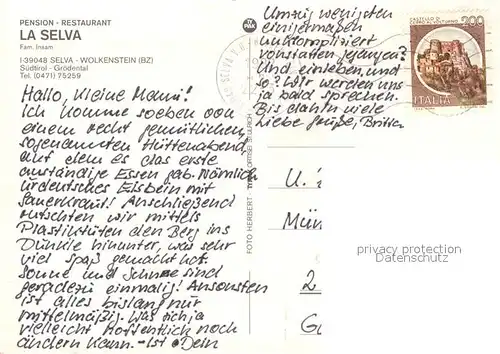 PENSION - RESTAURANT
LA SELVA
Fam. Insam
I-39048 SELVA - WOLKENSTEIN (BZ)
Südtirol - Grödental
Tel. (0471) 75259
Hallo, kleine Mami!
Ich komme soeben von
einem recht gemütlichen
sogenannten Hüttenabend,
auf dem es das erste
anständige Essen gab. Nämlich
urdeutsches Eisbein mit
Sauerkraut! Anschließend
rutschten wir mittels
Plastiktüten den Berg ins
Dunkle hinunter, was sehr
viel Spaß gemacht hat.
Sonne und Schnee sind
geradezu einmalig! Ansonsten
ist alles bislang nur
mittelmäßig. Was sich ja
vielleicht hoffentlich noch
ändern kann. - Ist Dein
Umzug wenigsten
einigermaßen
unkompliziert
vonstatten gegangen?
Und einleben, und
so? Wir werden uns
ja bald sprechen.
Bis dahin viele
liebe Grüße, Britta
TYPAK
FOTO HERBERT - ORTISEI ST. ULRICH
CASTELLO DI
CERRO AL VOLTURNO
200
ITALIA
U.
Mün
2
G
privacy protection
Datenschutz